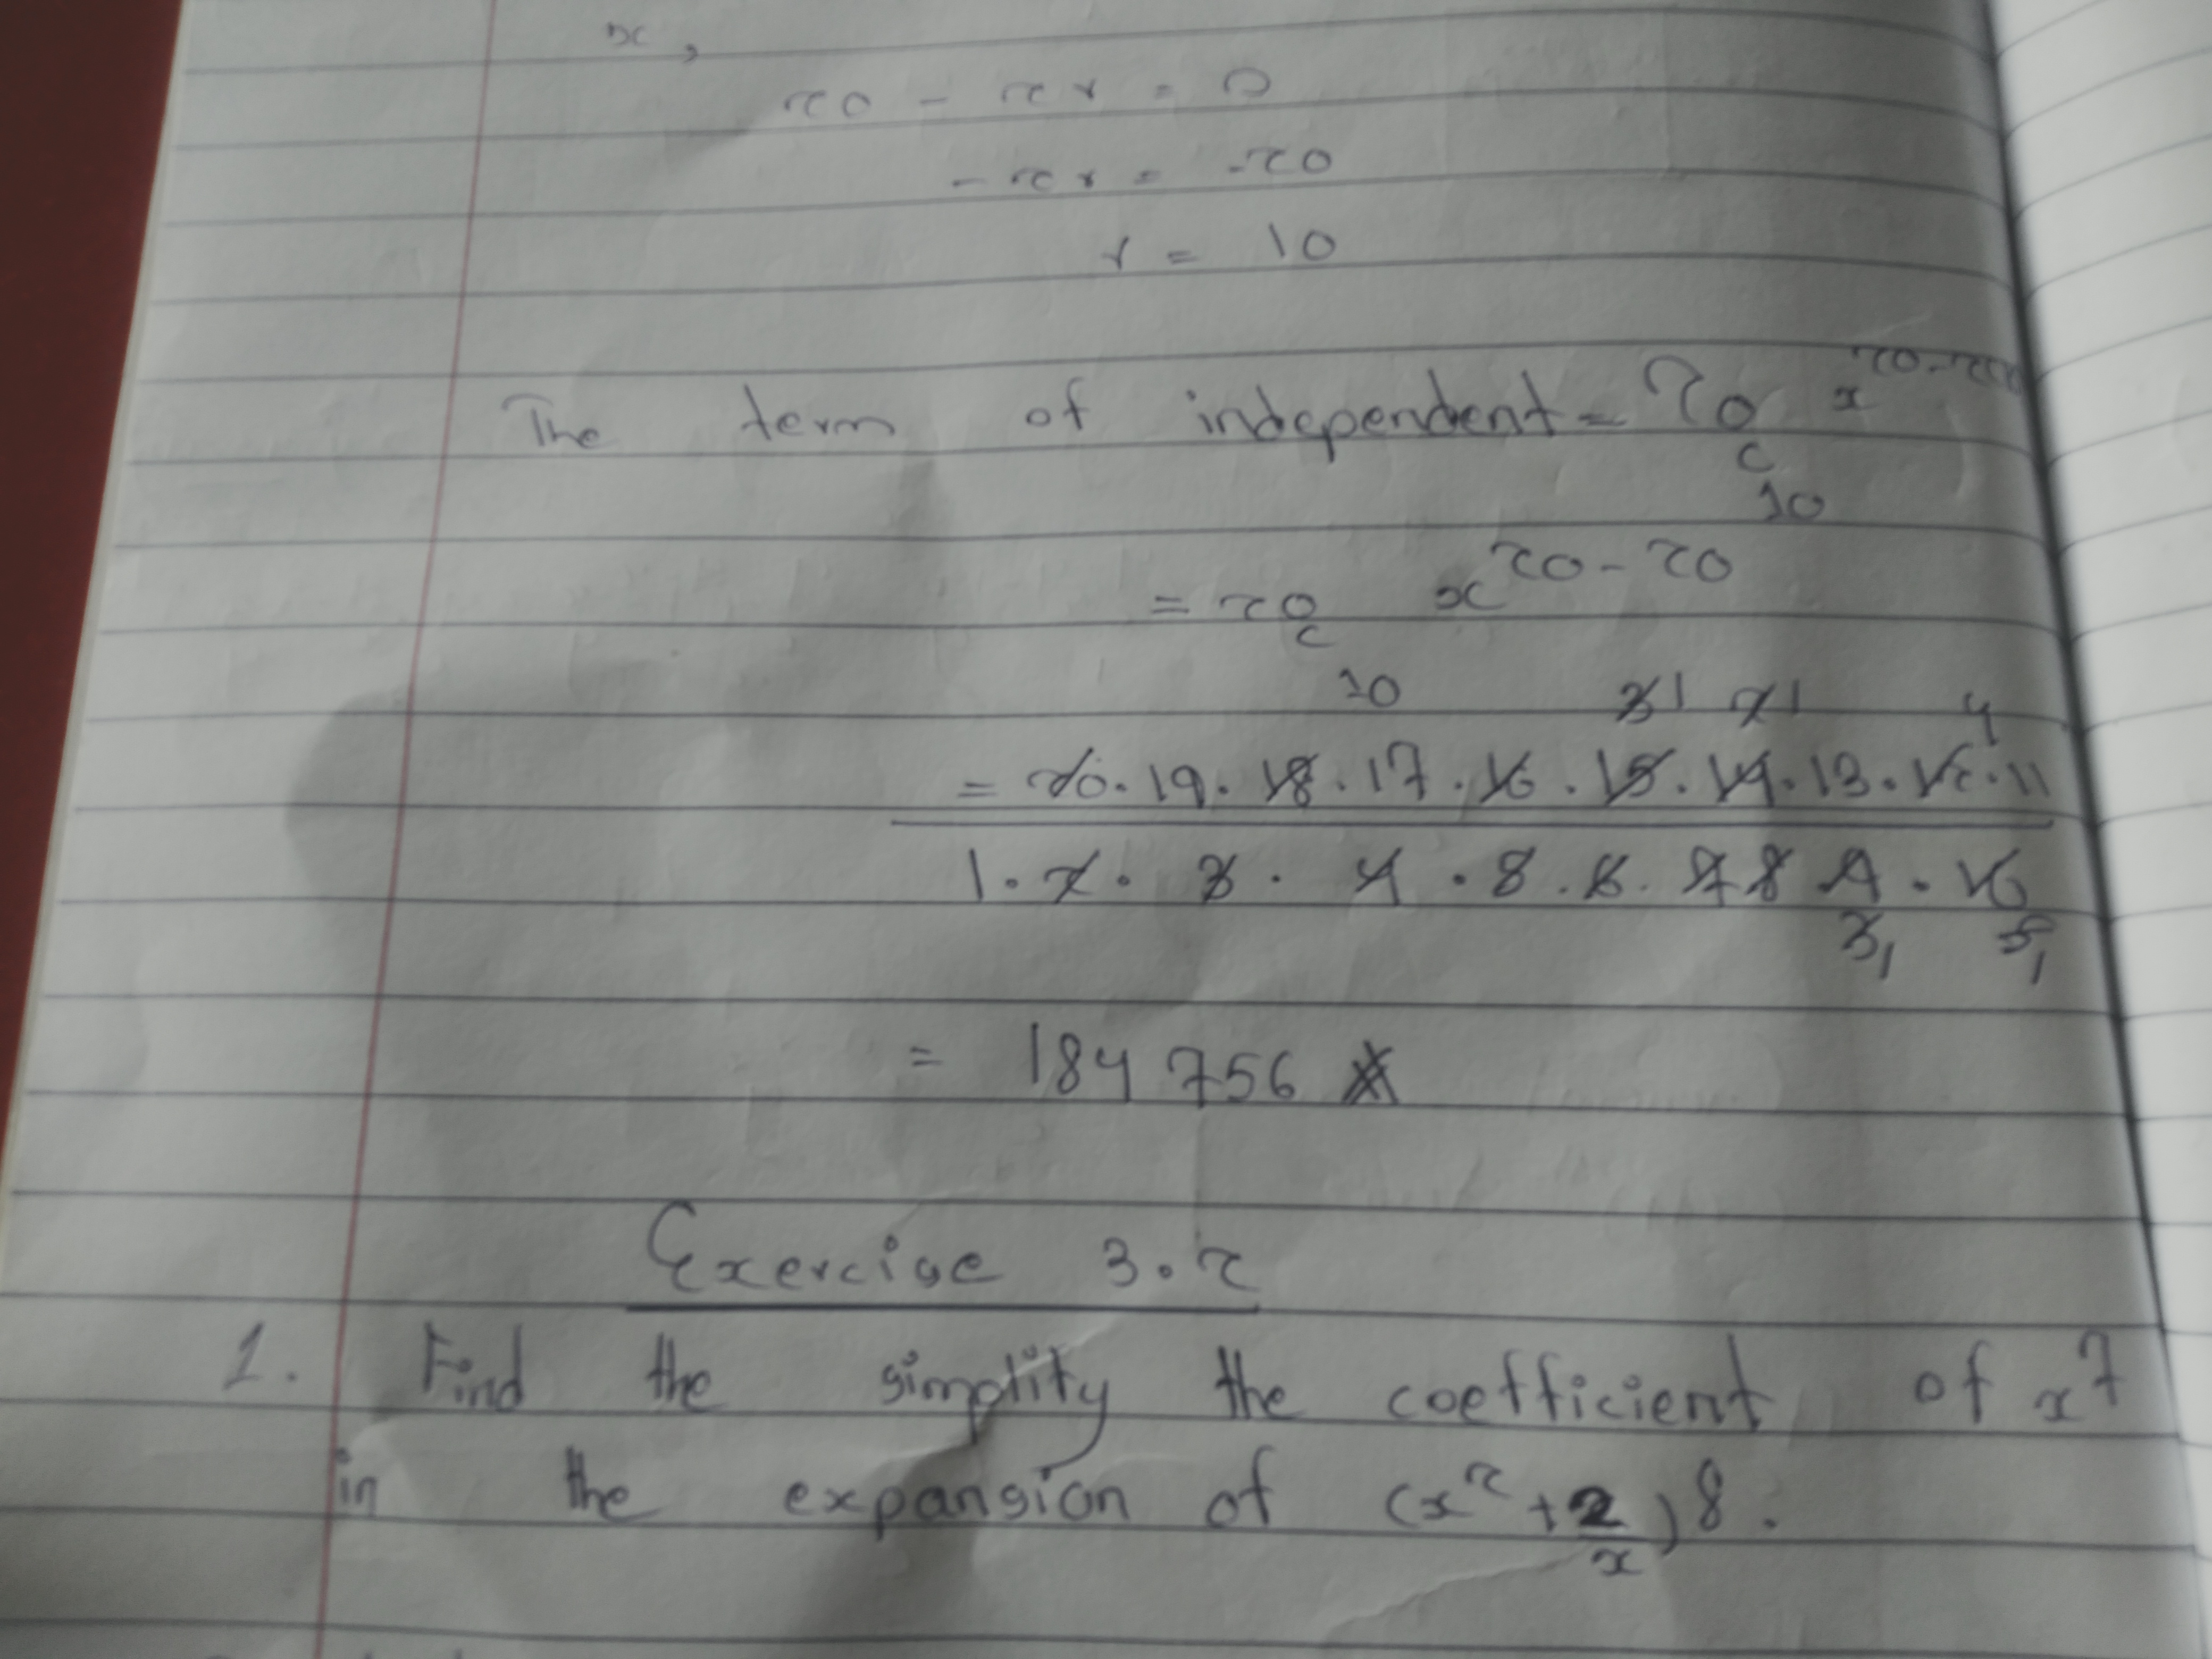 x,
20 - 2r = 0
- 2r = -20
r = 10
The term of independent = 20 c 10 x 20-2(10)
= 20 c 10 x 20-20
3 1 2 1 4
= 20.19.18.17.16.15.14.13.12.11
1.2.3.4.5.6.7 8 9.10
3 1 5 1
= 184 756
Exercise 3.2
1. Find the simplity the coefficient of x7
in the expansion of (x2 + 2/x)8.